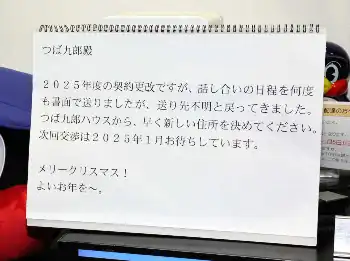 つば九郎殿
2025年度の契約更改ですが、話し合いの日程を何度
も書面で送りましたが、送り先不明と戻ってきました。
つば九郎ハウスから、早く新しい住所を決めてください。
次回交渉は2025年1月お待ちしています。
メリークリスマス!
よいお年を〜。